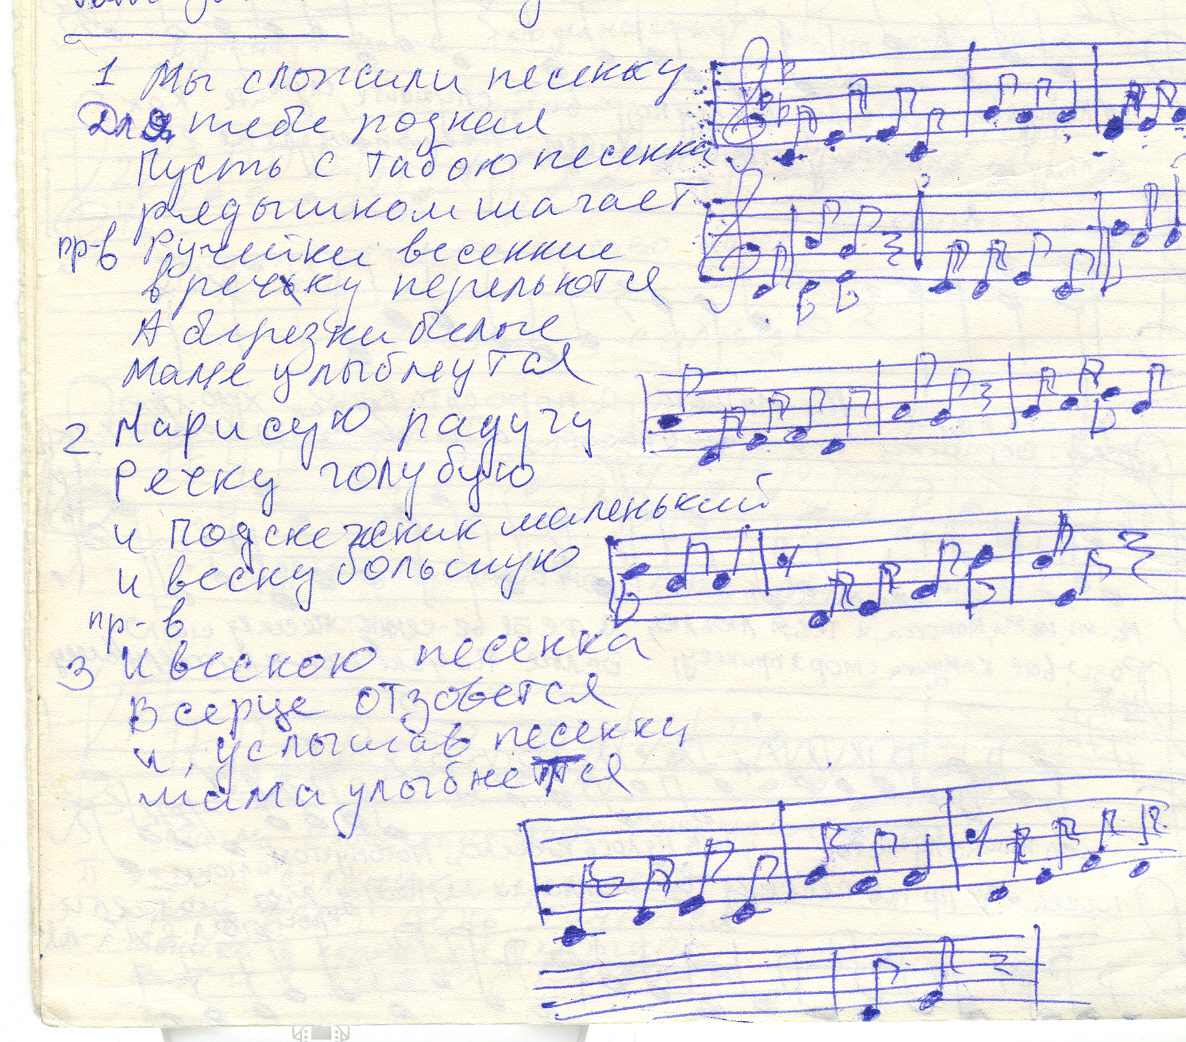 1 Мы сложили песенку
Для тебя родная
Пусть с табою песенка
рядышком шагает
пр-в Ручейки весенние
в речьку перельются
А бирезки белые
Маме улыбнутся
2 Нарисую радугу
Речку голубую
и подснежник маленький
и весну большую
пр-в
3 И весною песенка
В серце отзовется
и, услышав песенку
мама улыбнется